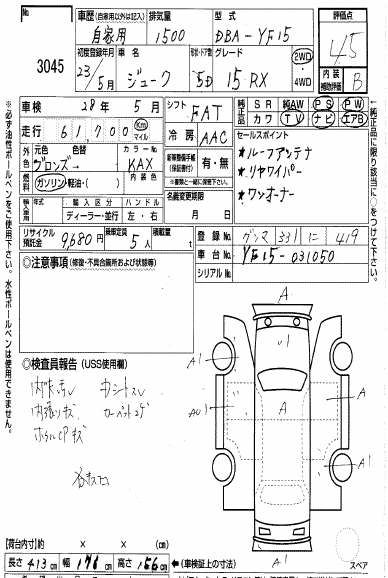 No.
3045
車歴 (自家用以外は記入)
自家用
排気量
1500
型式
DBA-YF15
評価点
4.5
初度登録年月
23/5月
車名
ジューク
形状・ドア数
5D
グレード
15RX
2WD
・
4WD
内装
補助評価
B
車検 28年 5月
シフト
FAT
純正 SR 純AW PS PW
純正 カワ TV ナビ エアB
走行 61,700 Km マイル
冷房
AAC
セールスポイント
★ルーフアンテナ
★リヤワイパー
★ワンオーナー
外色 元色 色替
ブロンズ→
カラーNo.
KAX
燃料 ガソリン・軽油・( )
内装色
新車整備手帳
(保証書付)
有・無
輸入車 年式 輸入区分 ハンドル
ディーラー・並行 左・右
名義変更期限
月 日
リサイクル預託金
9,680円
乗車定員
5人
積載量
t
登録No.
グンマ 331 に 419
車台No.
YF15-031050
シリアルNo.
○注意事項 (修復・不具合箇所および状態等)
○検査員報告 (USS使用欄)
A
A1
U1
A1
A
A
A1
A1
A1
【荷台内寸】約 × × (cm)
長さ 413cm 幅 176cm 高さ 156cm
←(車検証上の寸法)
スペア
※必ず油性ボールペンをご使用下さい。水性ボールペンは使用できません。
純正品に限り該当に○をつけて下さい